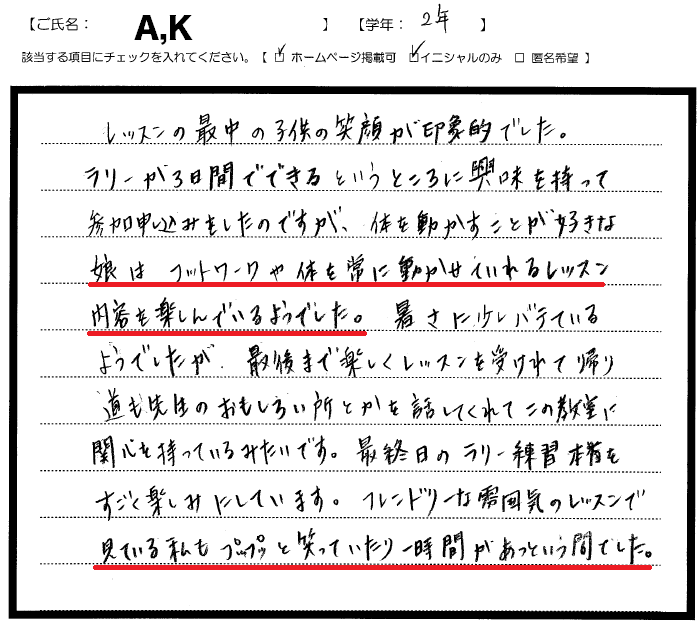 【ご氏名： A,K 】 【学年： 2年 】
該当する項目にチェックを入れてください。【 ☑ ホームページ掲載可 ☑イニシャルのみ □ 匿名希望 】
レッスンの最中の子供の笑顔が印象的でした。
ラリーが3日間でできるというところに興味を持って
参加申し込みをしたのですが、体を動かすことが好きな
娘は フットワークや体を常に動かせていれるレッスン
内容を楽しんでいるようでした。 暑さに少しバテている
ようでしたが、最後まで楽しくレッスンを受けれて帰り
道も先生のおもしろい所とかを話してくれてこの教室に
関心を持っているみたいです。最終日のラリー練習本番を
すごく楽しみにしています。フレンドリーな雰囲気のレッスンで
見ている私もプップッと笑っていたり一時間があっという間でした。